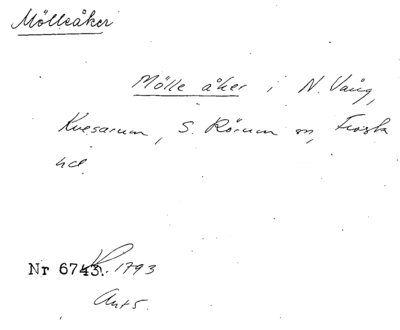 Mölleåker
Mölle åker i N. Vång,
Kvesarum, S. Rörum sn, Frosta
hd.
Nr 6743. 1793
Ant 5.